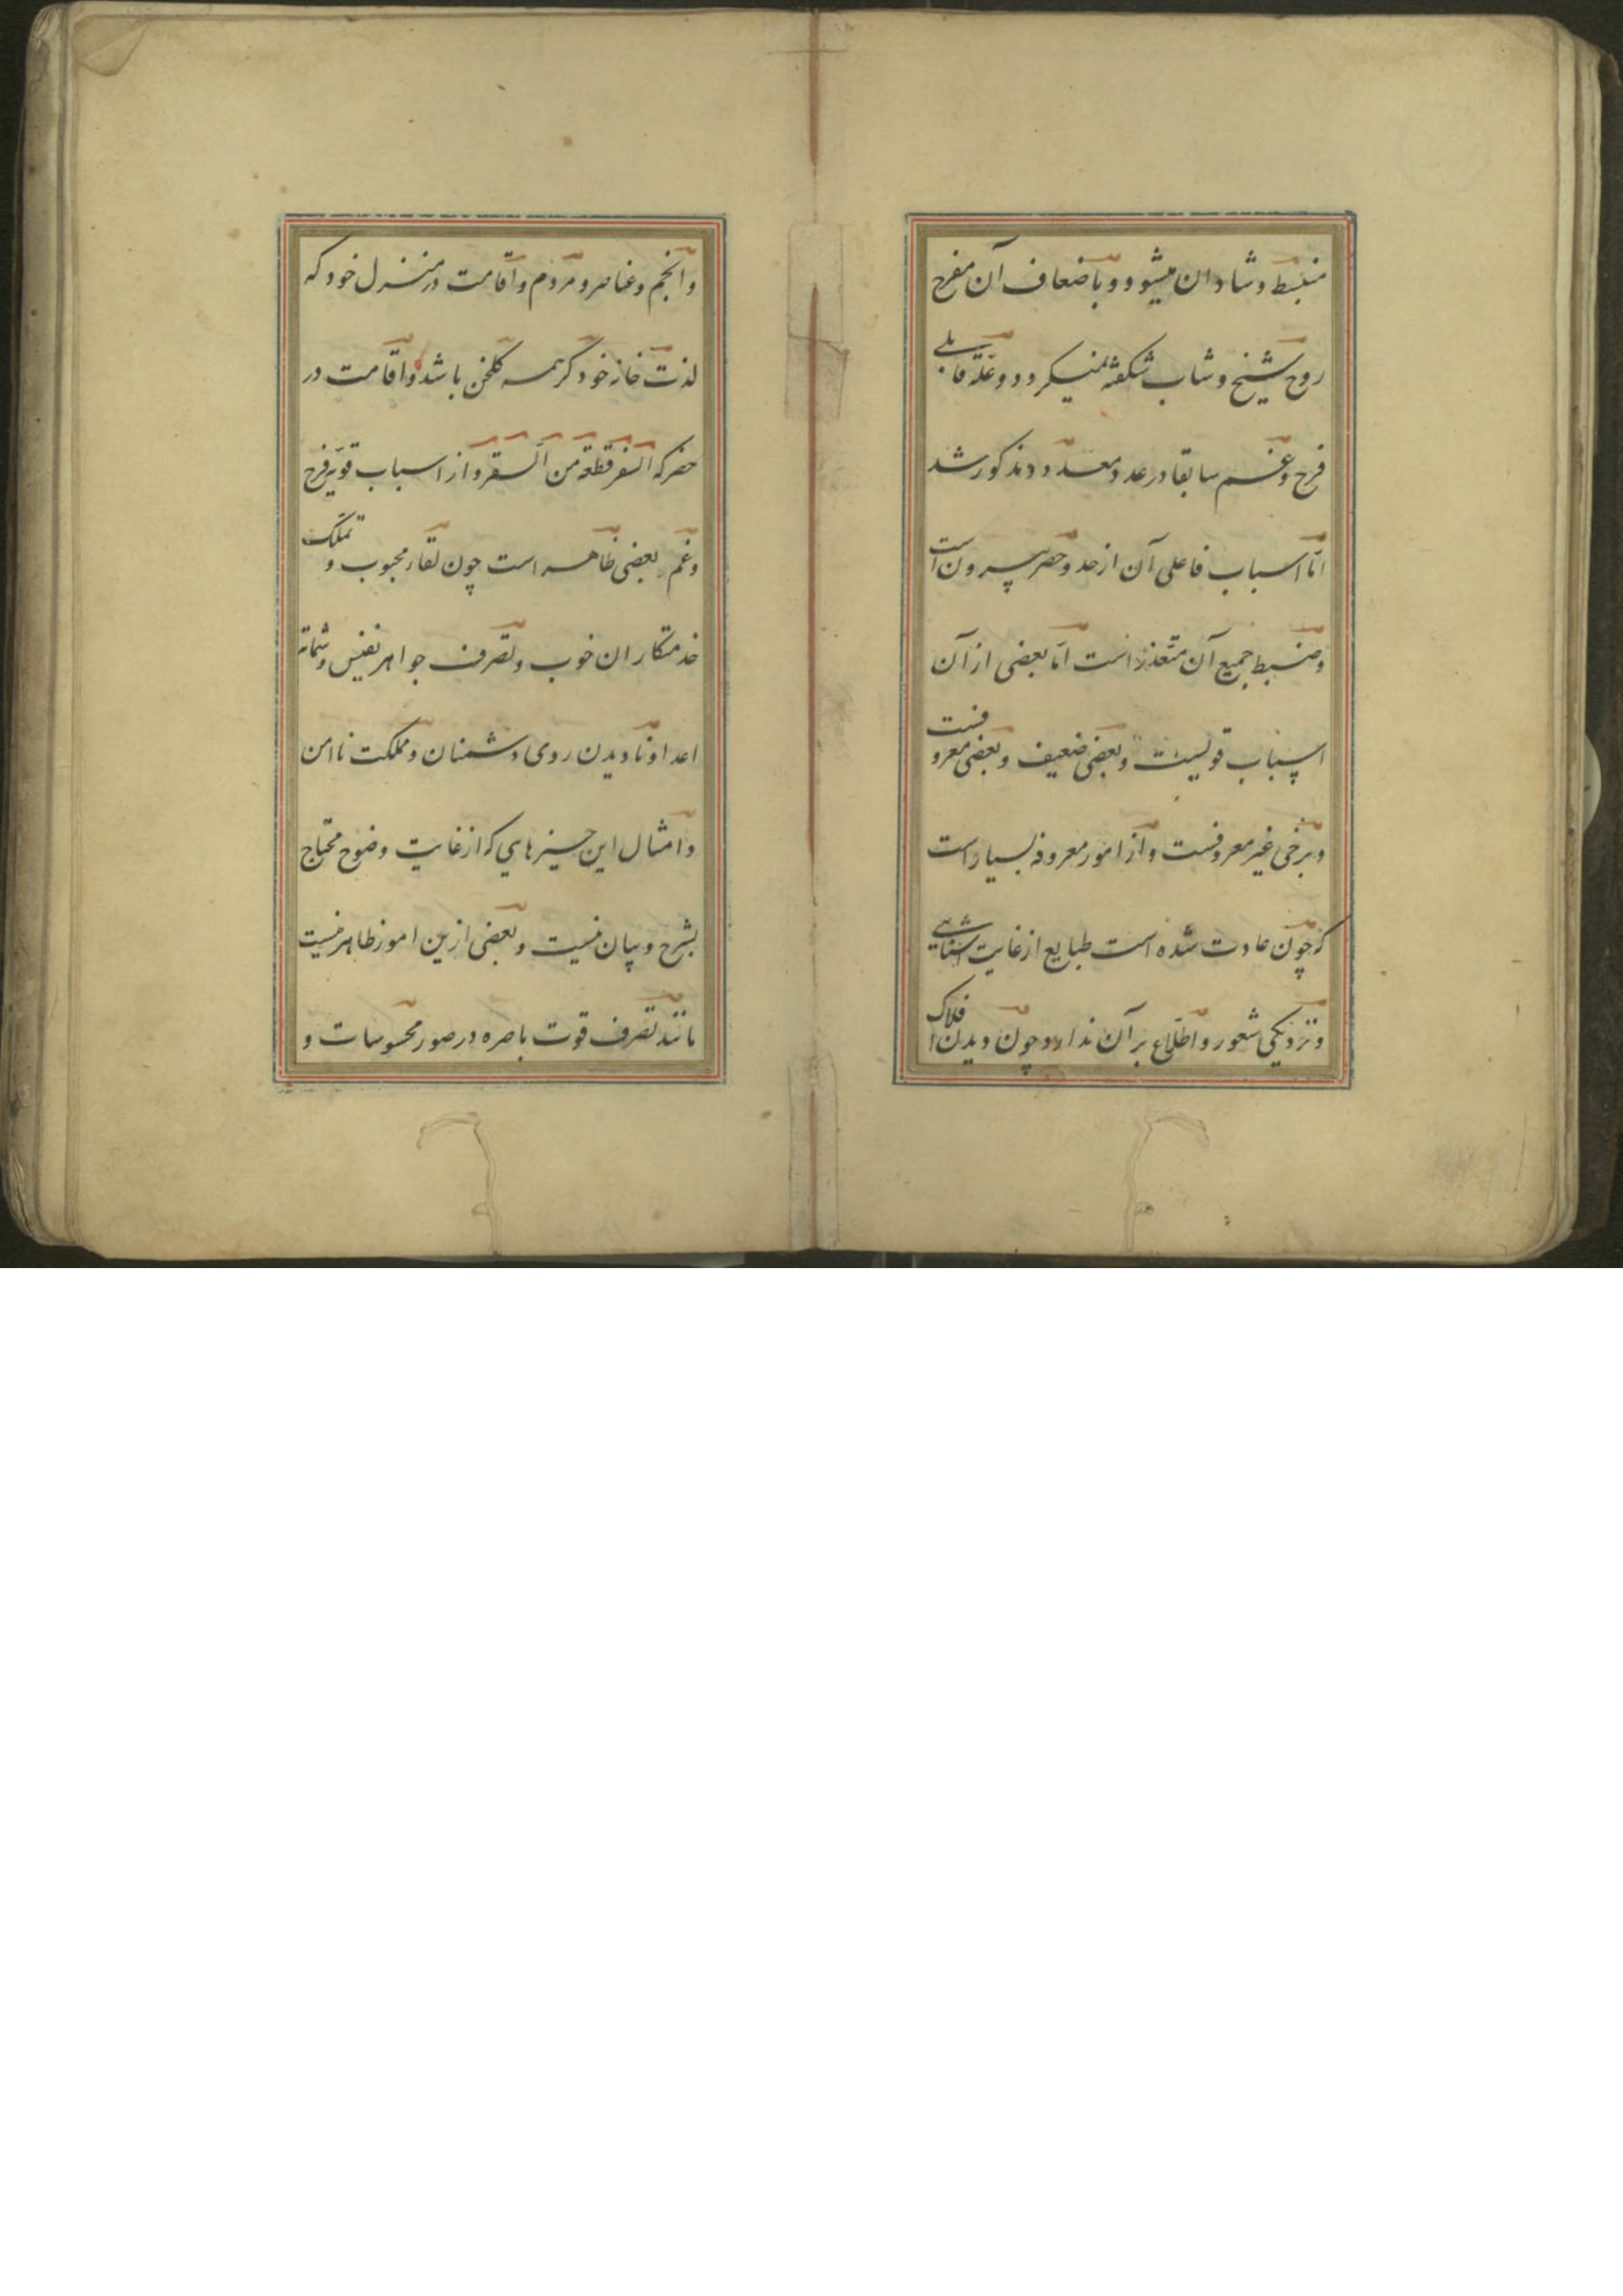 منبسط و شادان میشود و باضعاف آن مفرح
روح شیخ و شاب شکفته نمیکردد و علة قابلی
فرح و غم سابقا در عدد معدود مذکور شد
امّا اسباب فاعلی آن از حد و حصر بیرون است
و ضبط جمیع آن متعذر است امّا بعضی از آن
اسباب قویست و بعضی ضعیف و بعضی معروفست
و برخی غیر معروفست و از امور معروفه بسیار است
که چون عادت شده است طبایع از غایت آشنایی
و نزدیکی شعور و اطلاع بر آن ندارد چون دیدن افلاک
و انجم و عناصر و مردم و اقامت در منزل خود که
لذت خانه خود کرهمه کلخن باشد و اقامت در
حضر که السفر قطعة من السقر و از اسباب قویه فرح
و غم بعضی ظاهر است چون لقاء محبوب و تملک
خدمتکاران خوب و تصرف جواهر نفیس و شماتة
اعدا و نادیدن روی دشمنان و مملکت ناامن
و امثال این چیزهایی که از غایت وضوح محتاج
بشرح و بیان نیست و بعضی ازین امور ظاهر نیست
مانند تصرف قوت باصره در صور محسوسات و